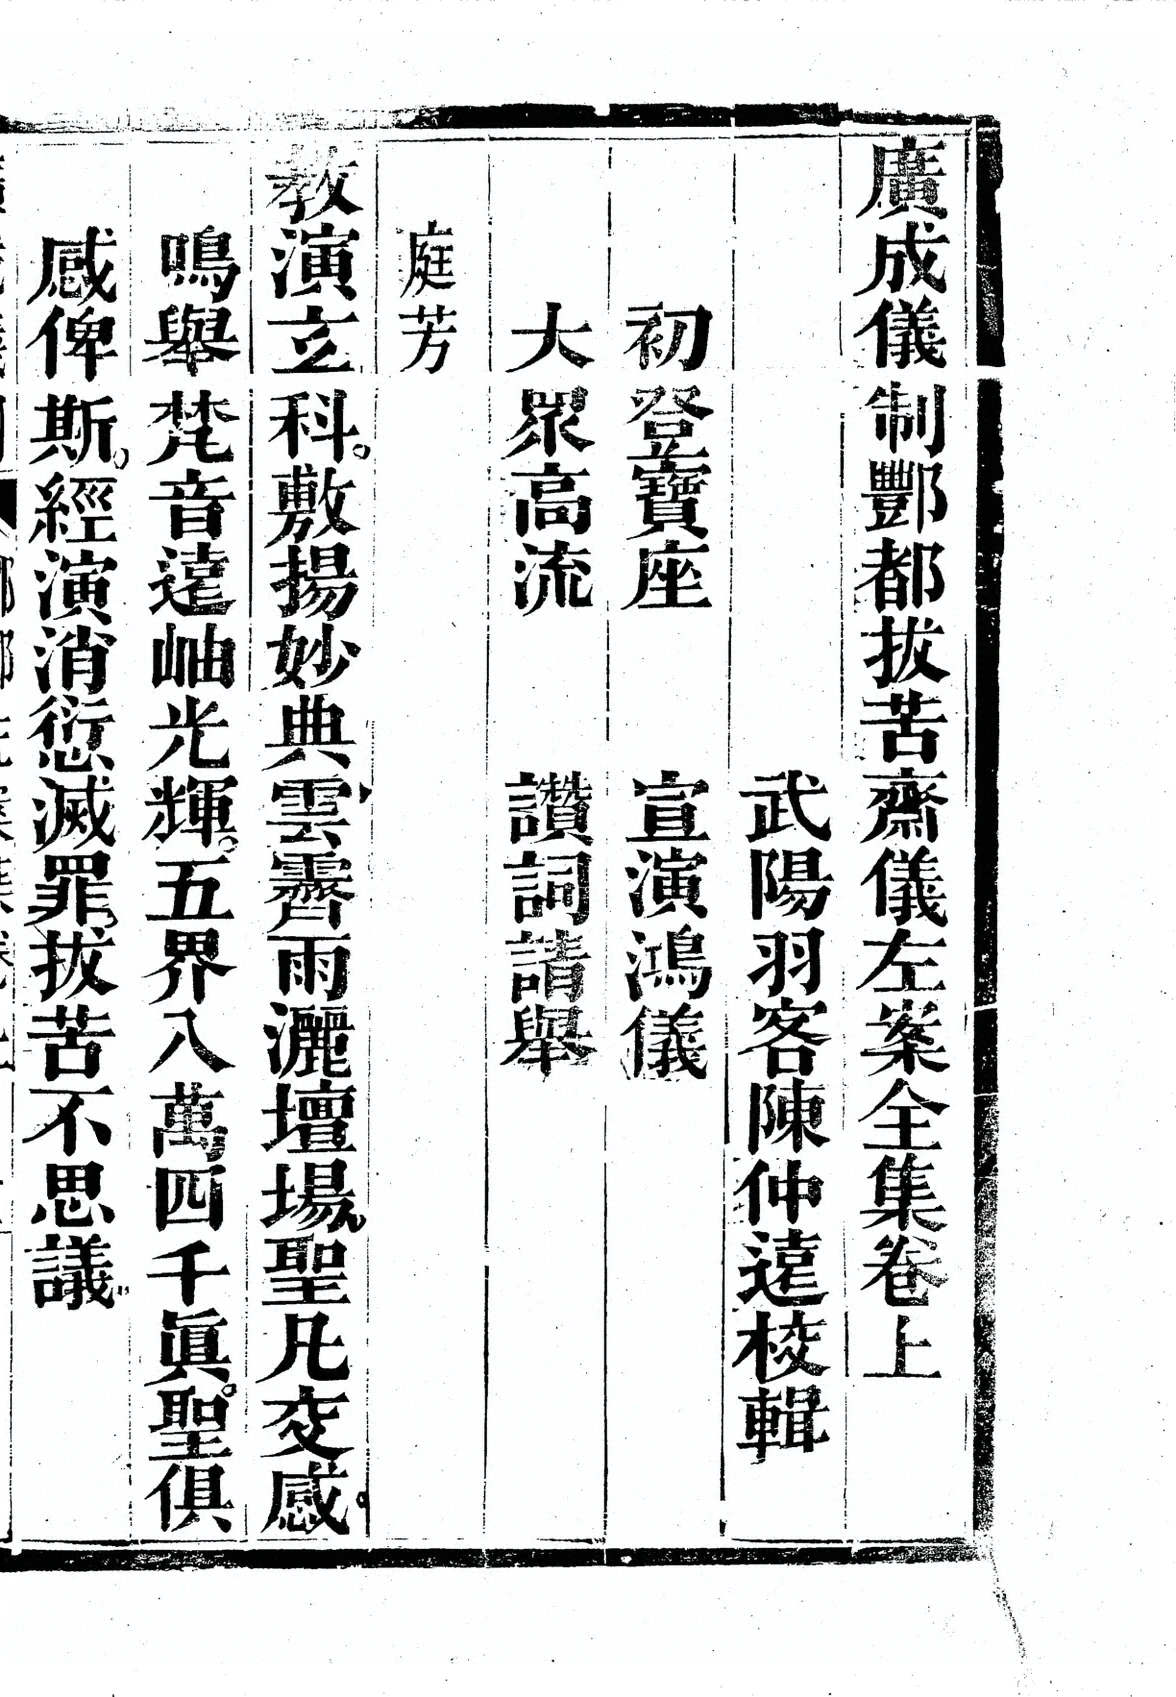 廣成儀制酆都拔苦齋儀左案全集卷上
武陽羽客陳仲遠校輯
初登寶座　宣演鴻儀
大眾高流　讚詞請舉
庭芳
教演立科。敷揚妙典雲霽雨灑壇場。聖凡交感。
鳴舉梵音遠岫光輝。五界八萬四千眞。聖俱
感俾斯。經演消愆滅罪。拔苦不思議。